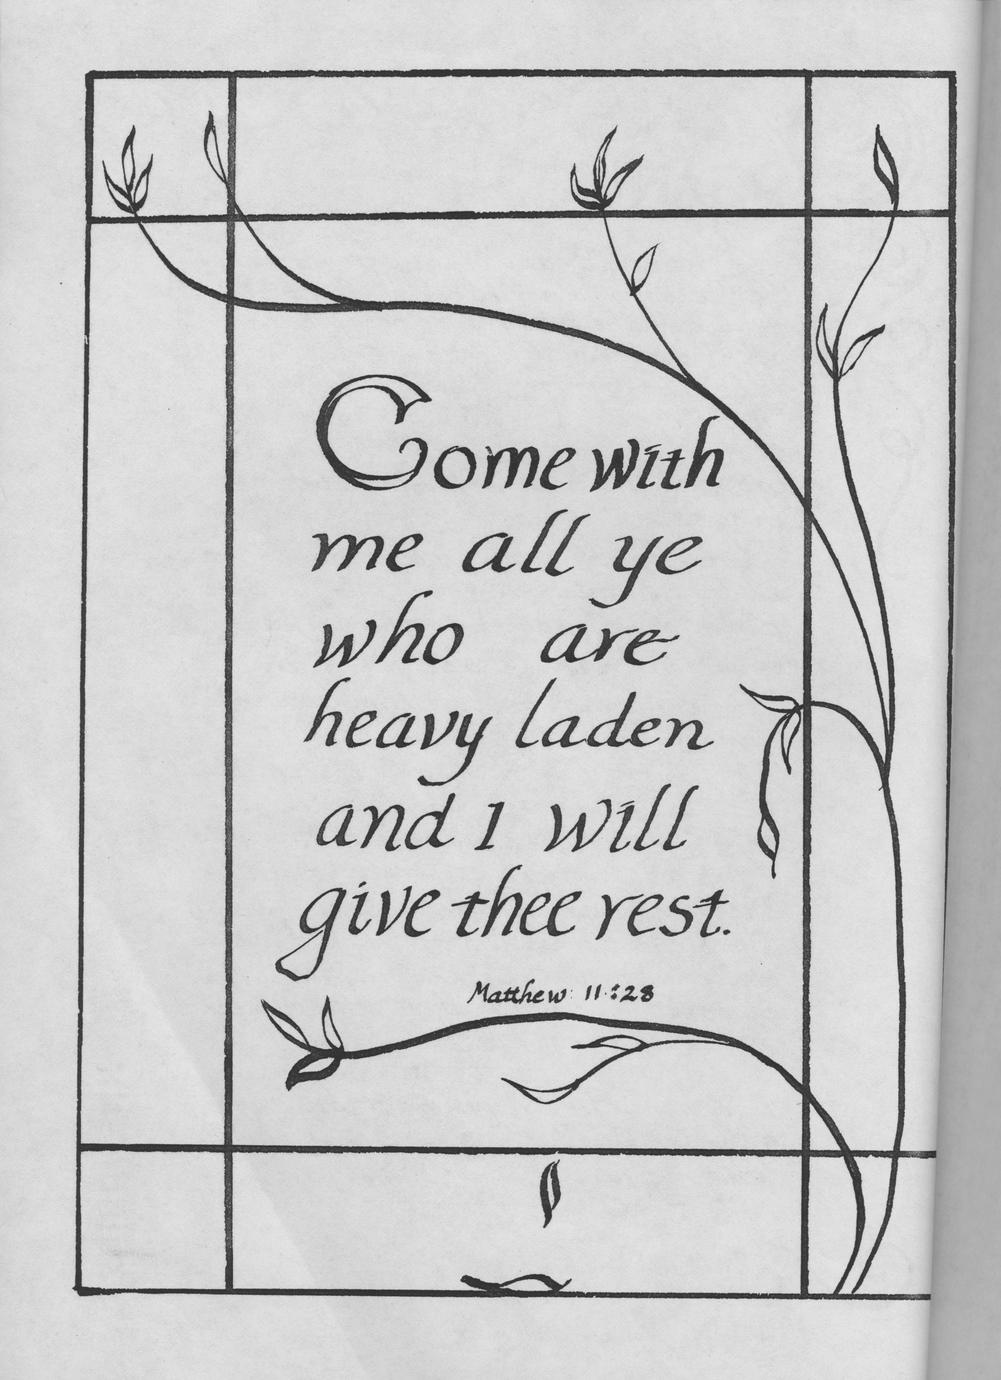 Come with
me all ye
who are
heavy laden
and I will
give thee rest.
Matthew 11:28